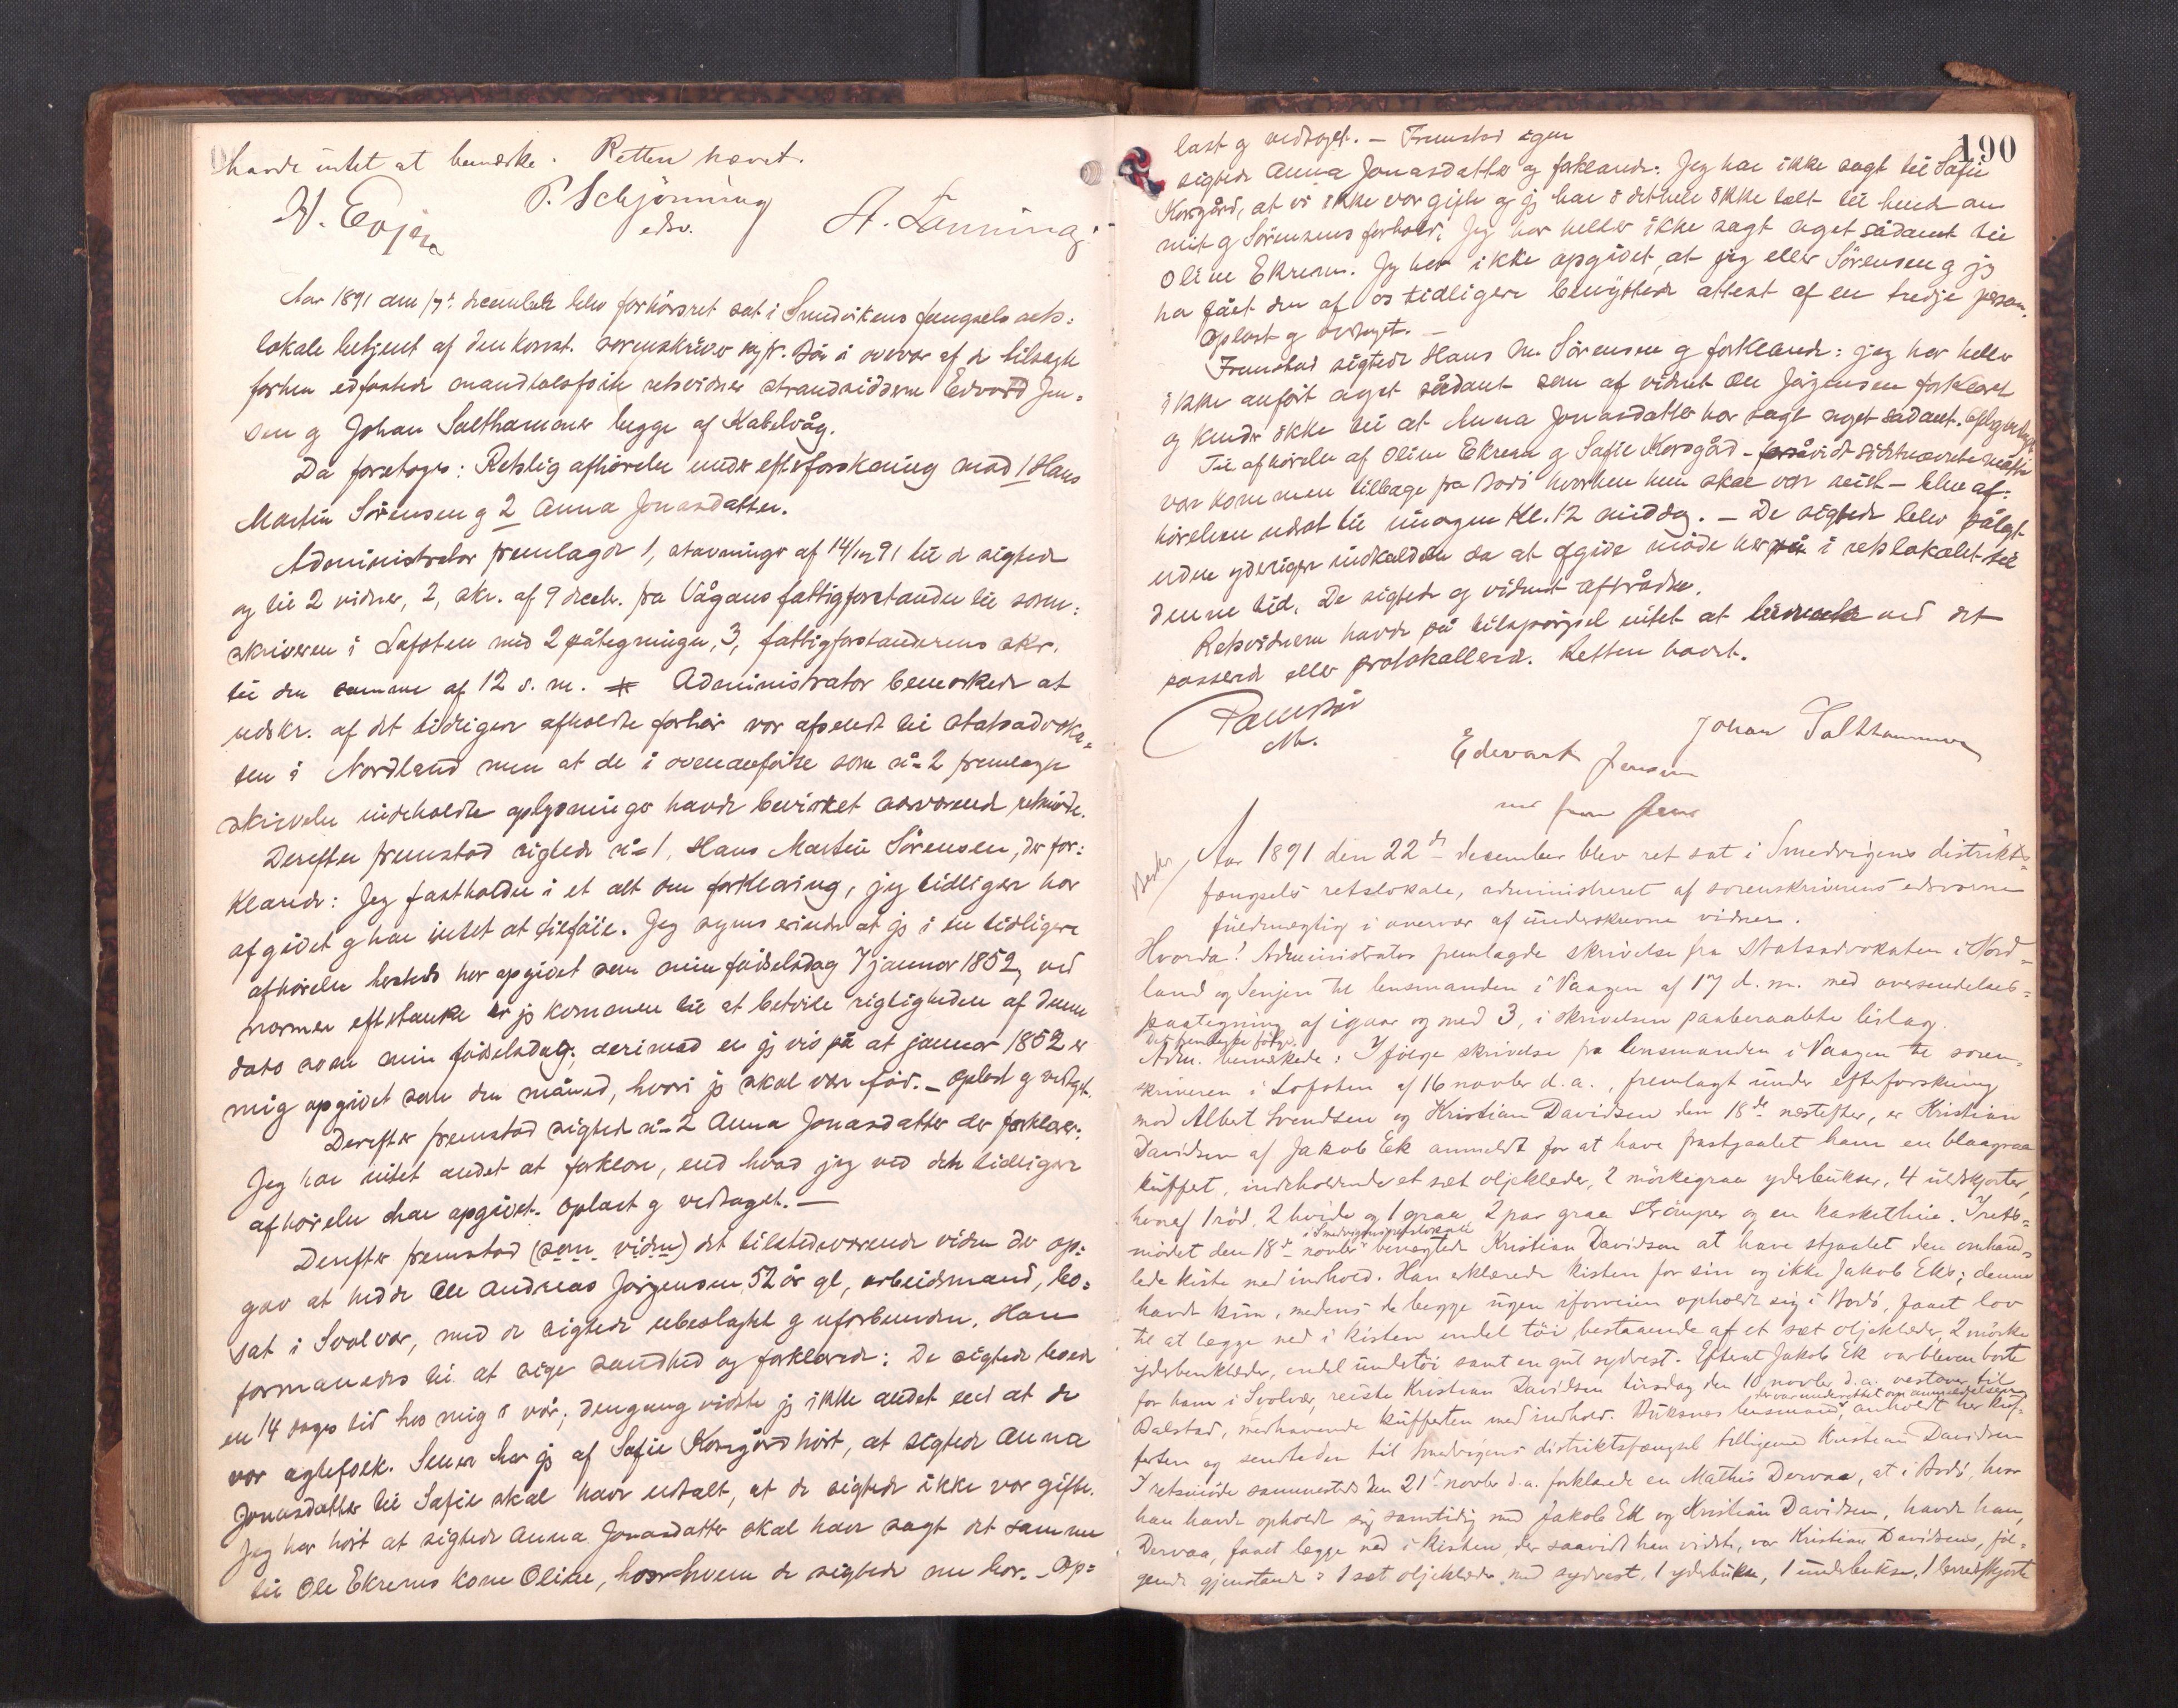 havde intet at bemærke. Retten hævet.
W. Evjen P. Schjönning A. Lanning.
edsv.
Aar 1891 den 17de december blev forhörsret sat i Smedvikens fængsels rets-
lokale betjent af den konst. sorenskriver i overvær af de tilsagte
forhen edfæstede mandtalsførte retsvidner strandsidderne Edvard Jen-
sen og Johan Salthammer begge af Kabelvåg.
Da foretoges: Retslig afhörelse under efterforskning mod 1 Hans
Martin Sörensen og 2 Anna Jonasdatter.
Administrator fremlagde 1, stævninger af 14/12 91 til de sigtede
og til 2 vidner, 2, skr. af 9 decbr. fra Vågans fattigforstander til soren-
skriveren i Lofoten med 2 påtegninger, 3, fattigforstanderens skr.
til den samme af 12 s. m. Administrator bemerkede at
udskr. af det tidligere afholdte forhör var afsendt til statsadvoka-
ten i Nordland men at de i ovenanförte som no 2 fremlagte
skrivelse indeholdte oplysninger havde bevirket nærværende retsmöde.
Derefter fremstod sigtede no 1, Hans Martin Sörensen, der for-
klarede: Jeg fastholder i et alt den forklaring, jeg tidligere har
afgivet og har intet at tilföie. Jeg synes erindre at jeg i en tidligere
afhörelse hersteds har opgivet som min födselsdag 7 januar 1852, ved
nærmere eftertanke er jeg kommen til at betvile rigtigheden af denne
dato som min födselsdag; derimod er jeg vis på at januar 1852 er
mig opgivet som den måned, hvori jeg skal være född. - Oplæst og vedtaget.
Derefter fremstod sigtede no 2 Anna Jonasdatter der forklarer:
Jeg har intet andet at forklare, end hvad jeg ved den tidligere
afhörelse har opgivet. Oplæst og vedtaget. -
Derefter fremstod (som vidne) det tilstedeværende vidne der op-
gav at hedde Ole Andreas Jörgensen, 52 år gl, arbeidsmand, bo-
sat i Svolvær, med de sigtede ubeslægtet og uforbunden. Han
formanedes til at sige sandhed og forklarede: De sigtede boede
en 14 dages tid hos mig i vår; dengang vidste jeg ikke andet end at de
var ægtefolk. Senere har jeg af Sofie Korsgård hört, at sigtede Anna
Jonasdatter til Sofie skal have udtalt, at de sigtede ikke var gifte.
Jeg har hört at sigtede Anna Jonasdatter skal have sagt det samme
til Ole Ekrems kone Oline, hos hvem de sigtede nu bor. - Op-
190
læst og vedtaget. - Fremstod igen
sigtede Anna Jonasdatter og forklarede: Jeg har ikke sagt til Sofie
Korsgård, at vi ikke var gifte og jeg har i det hele ikke talt til hende om
mit og Sörensens forhold. Jeg har heller ikke sagt noget sådant til
Oline Ekrem. Jeg har ikke opgivet, at jeg eller Sörensen og jeg
ha fået den af os tidligere benyttede attest af en tredje person.
Oplæst og vedtaget. -
Fremstod sigtede Hans M. Sörensen og forklarede: jeg har heller
ikke anfört noget sådant som af vidnet Ole Jörgensen forklaret
og kender ikke til at Anna Jonasdatter har sagt noget sådant.
Til afhörelse af Oline Ekrem og Sofie Korsgård - forsåvidt sidstnævnte måtte
være kommen tilbage fra Bodö hvorhen hun skal være reist - blev af-
hörelsen udsat til imorgen kl. 12 middag. - De sigtede blev pålagt
uden yderligere indkaldelse da at afgive möde her i retslokalet til
denne tid. De sigtede og vidnet aftrådte.
Retsvidnerne havde på tilspörgsel intet at bemerke ved det
passerede eller protokollerede. Retten hævet.
Edevart Jensen Johan Salthammer
Aar 1891 den 22de december blev ret sat i Smedvigens distrikts-
fængsels retslokale, administreret af sorenskriverens edsvorne
fuldmægtig i overvær af underskrevne vidner.
Hvorda: Administrator fremlagde skrivelse fra Statsadvokaten i Nord-
land og Senjen til lensmanden i Vaagen af 17 d. m. med oversendelses-
paategning af igaar og med 3, i skrivelsen paaberaabte bilag.
Det fremlagte fölger.
Adm. bemærkede: Ifölge skrivelse fra lensmanden i Vaagen til soren-
skriveren i Lofoten af 16 novbr d. a., fremlagt under efterforskning
mod Albert Svendsen og Kristian Davidsen den 18de næstefter, er Kristian
Davidsen af Jakob Ek anmeldt for at have frastjaalet ham en blaagraa
kuffert, indeholdende et sæt oljeklæder, 2 mörkegraa yderbukser, 4 uldskjorter,
hvoraf 1 röd, 2 hvide og 1 graa, 2 par graa strömper og en kaskethue. I rets-
i Smedvigens retslokale
mödet den 18de novbr benægtede Kristian Davidsen at have stjaalet den omhand-
lede kiste med indhold. Han erklærede kisten for sin og ikke Jakob Eks; denne
havde kun, medens de begge ugen iforveien opholdt sig i Bodö, faaet lov
til at lægge ned i kisten endel töi bestaaende af et sæt oljeklæder, 2 mörke
yderbenklæder, endel undertöi samt en gul sydvest. Efterat Jakob Ek var bleven borte
for ham i Svolvær, reiste Kristian Davidsen tirsdag den 10 novbr d. a. vestover til
Balstad, medhavende kufferten med indhold. Buksnes lensmand, der var underrettet om anmeldelsen, anholdt her kuf-
ferten og sendte den til Smedvigens distriktsfængsel tilligemed Kristian Davidsen
I retsmöde sammesteds den 21de novbr d. a. forklarede en Mathis Dervaa, at i Bodö, hvor
han havde opholdt sig samtidig med Jakob Ek og Kristian Davidsen, havde han,
Dervaa, faaet lægge ned i kisten, der saavidt han vidste, var Kristian Davidsens, föl-
gende gjenstande: 1 sæt oljeklæder med sydvest, 1 yderbukse, 1 underbukse, 1 lerretsskjorte